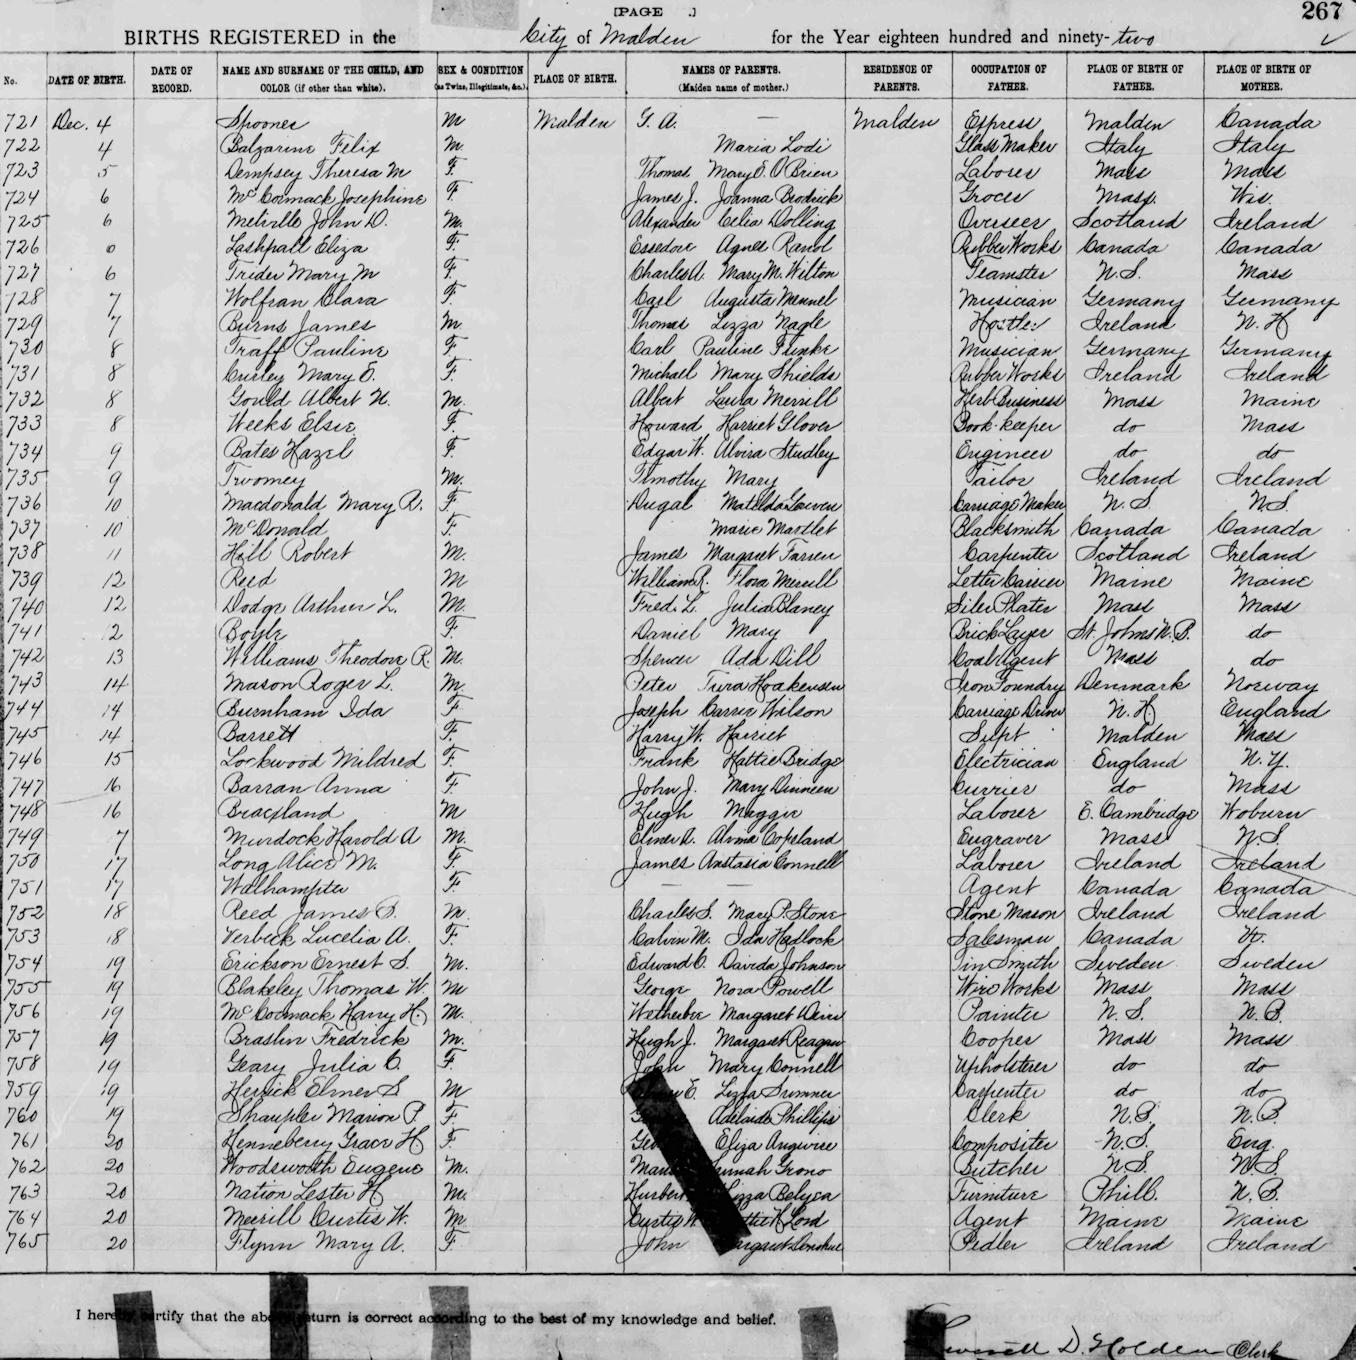 [PAGE .]
267
BIRTHS REGISTERED in the City of Malden for the Year eighteen hundred and ninety-two
No. DATE OF BIRTH. DATE OF RECORD. NAME AND SURNAME OF THE CHILD, AND COLOR (if other than white). SEX & CONDITION (as Twins, Illegitimate, &c.) PLACE OF BIRTH. NAMES OF PARENTS. (Maiden name of mother.) RESIDENCE OF PARENTS. OCCUPATION OF FATHER. PLACE OF BIRTH OF FATHER. PLACE OF BIRTH OF MOTHER.
721 Dec. 4 Spooner M Malden G. A. — Malden Express Malden Canada
722 4 Balzarine Felix M. Maria Lodi Glass Maker Italy Italy
723 5 Dempsey Theresa M F. Thomas Mary E. O'Brien Laborer Mass Mass
724 6 McCormack Josephine F. James J. Joanna Brodrick Grocer Mass. Wis.
725 6 Melville John D. M. Alexander Celia Dolling Overseer Scotland Ireland
726 6 Lashpall Eliza F. Essedore Agnes Rubber Works Canada Canada
727 6 Trider Mary M F. Charles A. Mary M. Wilton Teamster N.S. Mass
728 7 Wolfran Clara F. Carl Augusta Mennel Musician Germany Germany
729 7 Burns James M. Thomas Lizza Nagle Hostler Ireland N. H
730 8 Traff Pauline F. Carl Pauline Funke Musician Germany Germany
731 8 Curley Mary E. F. Michael Mary Shields Rubber Works Ireland Ireland
732 8 Gould Albert N. M. Albert Laula Merrill Herb Business Mass Maine
733 8 Weeks Elsie F. Howard Harriet Glover Book-keeper do Mass
734 9 Bates Hazel F. Edgar W. Alvira Studley Engineer do do
735 9 Twomey M. Timothy Mary Tailor Ireland Ireland
736 10 Macdonald Mary R. F. Dugal Matilda Gowen Carriage Maker N. S. N.S.
737 10 McDonald F. Marie Martlet Blacksmith Canada Canada
738 11 Hill Robert M. James Margaret Farren Carpenter Scotland Ireland
739 12 Reed M William R. Flora Merrill Letter Carrier Maine Maine
740 12 Dodge Arthur L. M. Fred. L. Julia Blaney Siler Plater Mass Mass
741 12 Boyle F. Daniel Mary Brick Layer St. Johns N. B. do
742 13 Williams Theodore R. M. Spencer Ada Dill Coal Agent Mass do
743 14 Mason Roger L. M. Peter Tura Hoakensen Iron Foundry Denmark Norway
744 14 Burnham Ida F. Joseph Carrie Wilson Carriage Driver N. H England
745 14 Barrett F. Harry W. Harriet Supt Malden Mass
746 15 Lockwood Mildred F. Frank Hattie Bridge Electrician England N.Y.
747 16 Barran Anna F. John J. Mary Dinneen Currier do Mass
748 16 Braceland M Hugh Maggie Laborer E. Cambridge Woburn
749 7 Murdock Harold A M. Elmer A. Alvina Copeland Engraver Mass N.S.
750 17 Long Alice M. F. James Anastasia Connell Laborer Ireland Ireland
751 17 Walhampter F. — — Agent Canada Canada
752 18 Reed James B. M. Charles S. Mary P. Stone Stone Mason Ireland Ireland
753 18 Verbeck Lucelia A. F. Calvin M. Ida Hadlock Salesman Canada Vt.
754 19 Erickson Ernest S. M. Edward C. Davida Johnson Tin Smith Sweden Sweden
755 19 Blakeley Thomas W. M George Nora Powell Wire Works Mass Mass
756 19 McCormack Harry H. M. Wetherbee Margaret Painter N. S. N.B.
757 19 Braslin Fredrick M. Hugh J. Margaret Reagan Cooper Mass Mass
758 19 Geary Julia C. F. John Mary Connell Upholsterer do do
759 19 Herrick Elmer S M E. Lizza Sumner Carpenter do do
760 19 Shaupler Marion P F. Adelaide Phillips Clerk N.B. N.B.
761 20 Henneberry Grace H F. Geo Eliza Angwire Compositer N.S. Eng.
762 20 Woodsworth Eugene M. Hannah Grono Butcher N.S. N.S.
763 20 Nation Lester H M. Hurbert Lizza Belyea Furniture Phill. N.B.
764 20 Merrill Curtis W. M. Curtis W H Lord Agent Maine Maine
765 20 Flynn Mary A. F. John Margaret Donahue Pedler Ireland Ireland
I hereby certify that the above return is correct according to the best of my knowledge and belief.
D. Holden Clerk